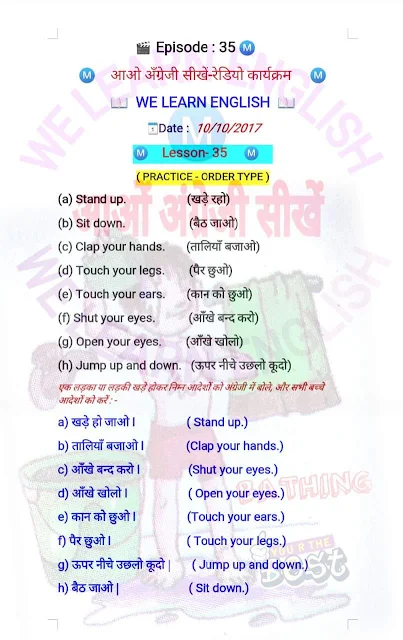 🎬 Episode : 35 Ⓜ️
Ⓜ️ आओ अँग्रेजी सीखें-रेडियो कार्यक्रम Ⓜ️
📖 WE LEARN ENGLISH 📖
Date : 10/10/2017
Ⓜ️ Lesson- 35 Ⓜ️
( PRACTICE - ORDER TYPE )
(a) Stand up. (खड़े रहो)
(b) Sit down. (बैठ जाओ)
(c) Clap your hands. (तालियाँ बजाओ)
(d) Touch your legs. (पैर छुओ)
(e) Touch your ears. (कान को छुओ)
(f) Shut your eyes. (आँखे बन्द करो)
(g) Open your eyes. (आँखे खोलो)
(h) Jump up and down. (ऊपर नीचे उछलो कूदो)
एक लड़का या लड़की खड़े होकर निम्न आदेशों को अंग्रेजी में बोले, और सभी बच्चे
आदेशों को करें : -
a) खड़े हो जाओ l ( Stand up.)
b) तालियाँ बजाओ l (Clap your hands.)
c) आँखे बन्द करो l (Shut your eyes.)
d) आँखे खोलो l ( Open your eyes.)
e) कान को छुओ l (Touch your ears.)
f) पैर छुओ l ( Touch your legs.)
g) ऊपर नीचे उछलो कूदो | ( Jump up and down.)
h) बैठ जाओ | ( Sit down.)
WE LEARN ENGLISH
आओं अंग्रेजी सीखें
WE LEARN ENGLISH
BATHING
BOST